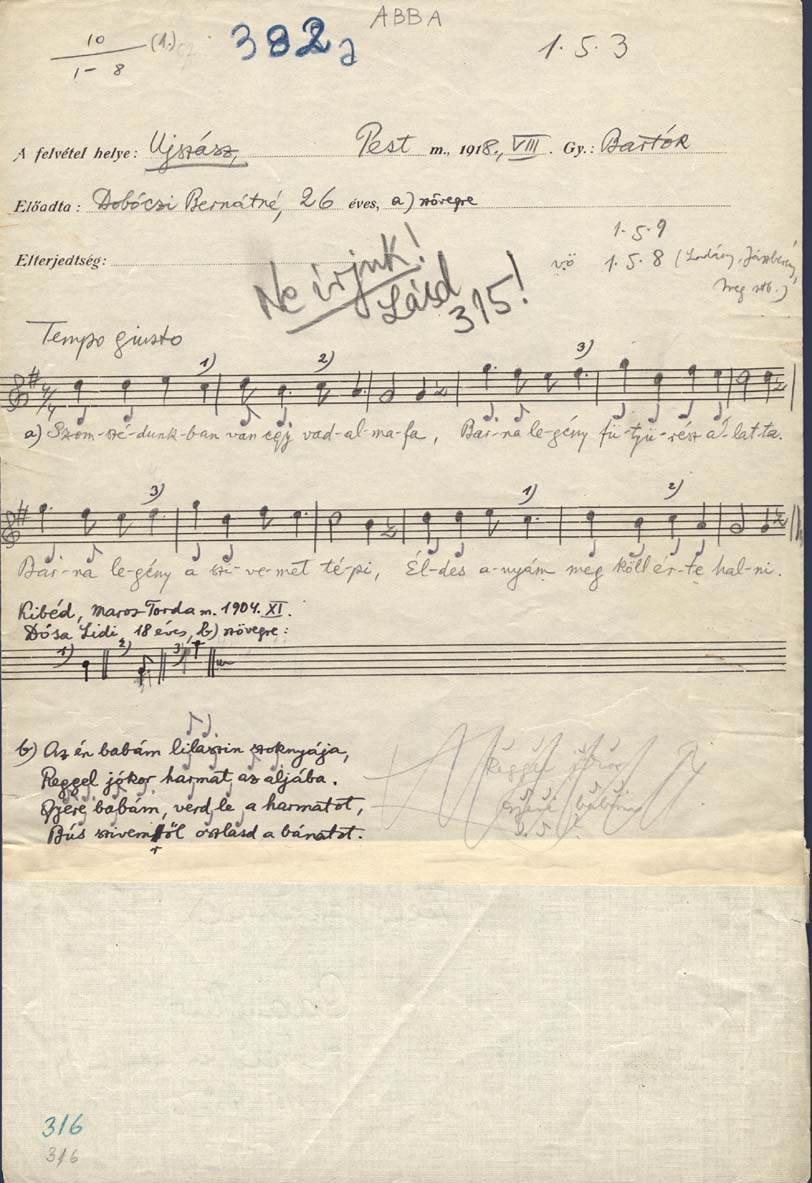 ABBA
10 (1.)
1-8
382a
1. 5. 3
A felvétel helye: Ujszász, Pest m., 1918., VIII. Gy.: Bartók
Előadta: Dobóczi Bernátné, 26 éves, a) szövegre
1. 5. 9
Elterjedtség: vö 1. 5. 8 (Ladány, Jászberény,
meg stb.)
Ne írjuk!
Lásd
315!
Tempo giusto
1) 2) 3)
4/4
a) Szom-szé-dunk-ban van egy vad-al-ma-fa, Bar-na le-gény fü-tyü-rész a-lat-ta.
3) 1) 2)
Bar-na le-gény a szi-ve-met té-pi, Él-des a-nyám meg köll ér-te hal-ni.
Kibéd, Maros-Torda m. 1904. XI.
Dósa Lidi, 18 éves, b) szövegre:
1) 2) 3)
b) Az én babám lilaszin szoknyája,
Reggel jókor harmat az aljába.
Gyere babám, verd le a harmatot,
Bús szivemről oszlasd a bánatot.
316
316